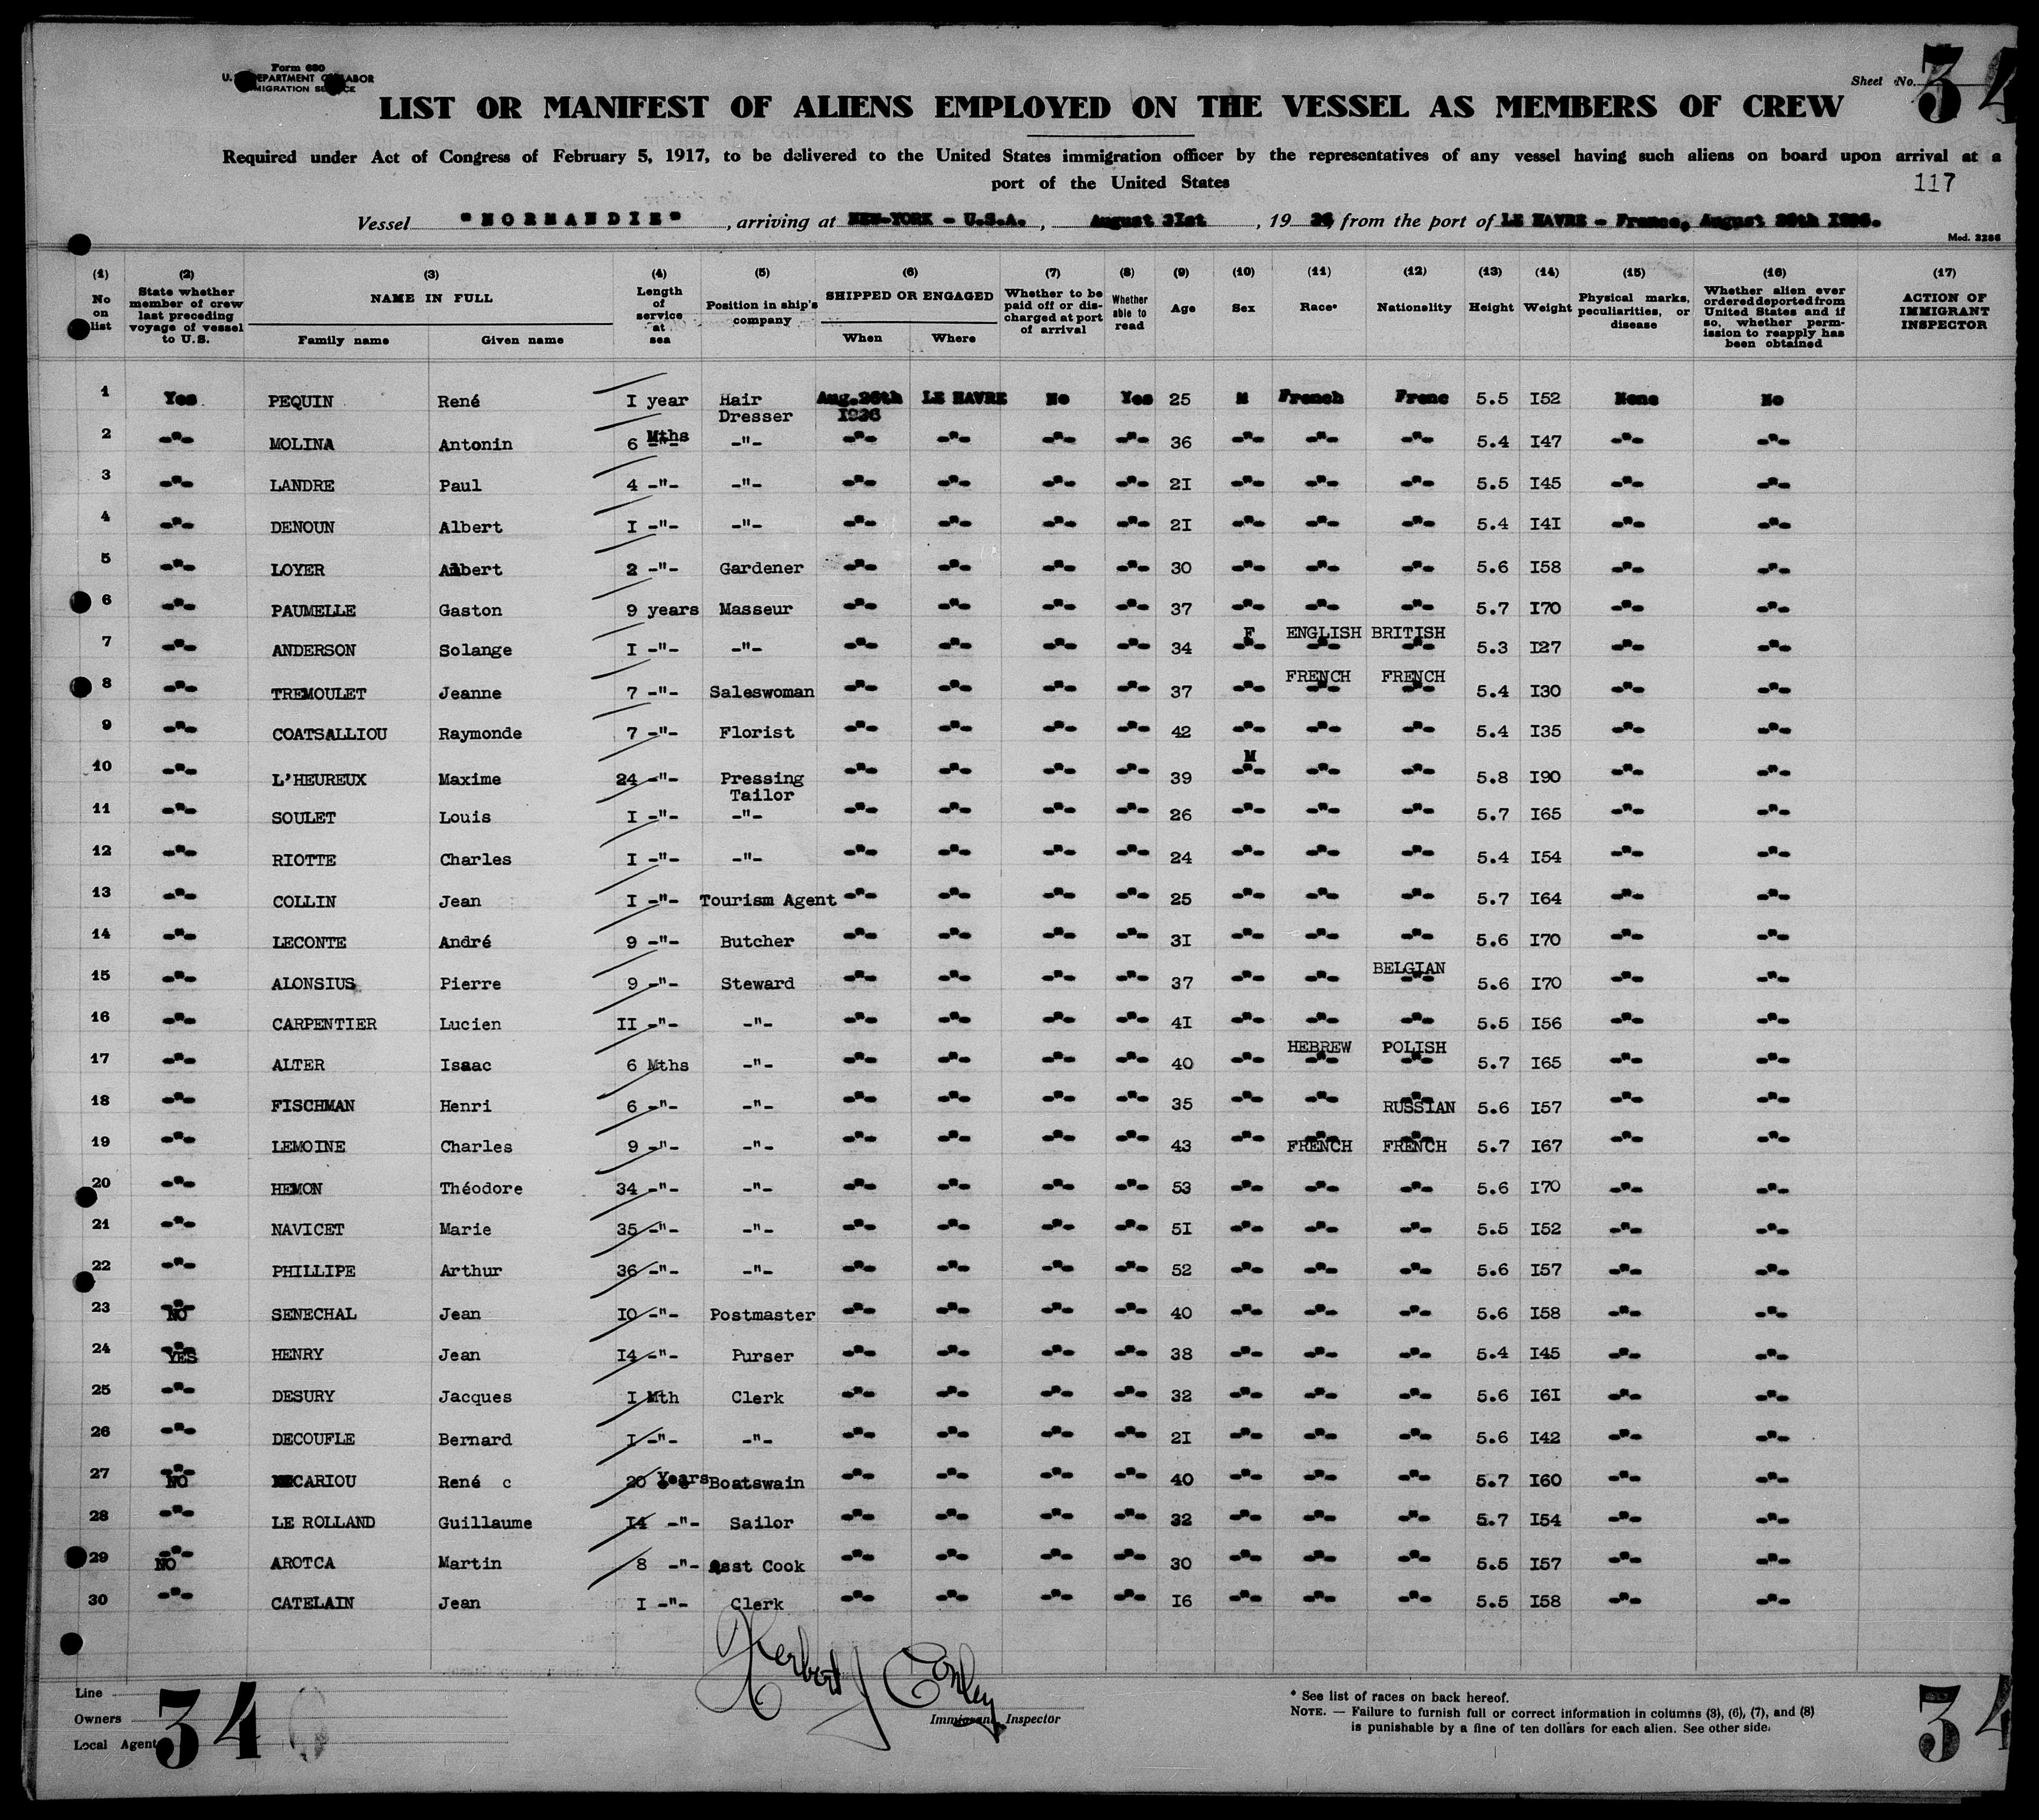 Form 680
U. S. DEPARTMENT OF LABOR
IMMIGRATION SERVICE
Sheet No. 34
LIST OR MANIFEST OF ALIENS EMPLOYED ON THE VESSEL AS MEMBERS OF CREW
Required under Act of Congress of February 5, 1917, to be delivered to the United States immigration officer by the representatives of any vessel having such aliens on board upon arrival at a
port of the United States
117
Vessel "NORMANDIE", arriving at NEW-YORK - U.S.A., August 31st, 19 36, from the port of LE HAVRE - France, August 26th 1936.
Mod. 3286
(1) (2) (3) (4) (5) (6) (7) (8) (9) (10) (11) (12) (13) (14) (15) (16) (17)
No on list State whether member of crew last preceding voyage of vessel to U.S. NAME IN FULL Family name Given name Length of service at sea Position in ship's company SHIPPED OR ENGAGED When Where Whether to be paid off or discharged at port of arrival Whether able to read Age Sex Race* Nationality Height Weight Physical marks, peculiarities, or disease Whether alien ever ordered deported from United States and if so, whether permission to reapply has been obtained ACTION OF IMMIGRANT INSPECTOR
1 Yes PEQUIN René I year Hair Dresser Aug.26th 1936 LE HAVRE No Yes 25 M French Frenc 5.5 I52 None No
2 -"- MOLINA Antonin 6 Mths -"- -"- -"- -"- -"- -"- 36 -"- -"- -"- 5.4 I47 -"- -"-
3 -"- LANDRE Paul 4 -"- -"- -"- -"- -"- -"- 2I -"- -"- -"- 5.5 I45 -"- -"-
4 -"- DENOUN Albert I -"- -"- -"- -"- -"- -"- 2I -"- -"- -"- 5.4 I4I -"- -"-
5 -"- LOYER Albert 2 -"- Gardener -"- -"- -"- -"- 30 -"- -"- -"- 5.6 I58 -"- -"-
6 -"- PAUMELLE Gaston 9 years Masseur -"- -"- -"- -"- 37 -"- -"- -"- 5.7 I70 -"- -"-
7 -"- ANDERSON Solange I -"- -"- -"- -"- -"- -"- 34 F ENGLISH BRITISH 5.3 I27 -"- -"-
8 -"- TREMOULET Jeanne 7 -"- Saleswoman -"- -"- -"- -"- 37 -"- FRENCH FRENCH 5.4 I30 -"- -"-
9 -"- COATSALLIOU Raymonde 7 -"- Florist -"- -"- -"- -"- 42 -"- -"- -"- 5.4 I35 -"- -"-
10 -"- L'HEUREUX Maxime 24 -"- Pressing Tailor -"- -"- -"- -"- 39 M -"- -"- 5.8 I90 -"- -"-
11 -"- SOULET Louis I -"- -"- -"- -"- -"- -"- 26 -"- -"- -"- 5.7 I65 -"- -"-
12 -"- RIOTTE Charles I -"- -"- -"- -"- -"- -"- 24 -"- -"- -"- 5.4 I54 -"- -"-
13 -"- COLLIN Jean I -"- Tourism Agent -"- -"- -"- -"- 25 -"- -"- -"- 5.7 I64 -"- -"-
14 -"- LECONTE André 9 -"- Butcher -"- -"- -"- -"- 3I -"- -"- -"- 5.6 I70 -"- -"-
15 -"- ALONSIUS Pierre 9 -"- Steward -"- -"- -"- -"- 37 -"- -"- BELGIAN 5.6 I70 -"- -"-
16 -"- CARPENTIER Lucien II -"- -"- -"- -"- -"- -"- 4I -"- -"- -"- 5.5 I56 -"- -"-
17 -"- ALTER Isaac 6 Mths -"- -"- -"- -"- -"- 40 -"- HEBREW POLISH 5.7 I65 -"- -"-
18 -"- FISCHMAN Henri 6 -"- -"- -"- -"- -"- -"- 35 -"- -"- RUSSIAN 5.6 I57 -"- -"-
19 -"- LEMOINE Charles 9 -"- -"- -"- -"- -"- -"- 43 -"- FRENCH FRENCH 5.7 I67 -"- -"-
20 -"- HEMON Théodore 34 -"- -"- -"- -"- -"- -"- 53 -"- -"- -"- 5.6 I70 -"- -"-
21 -"- NAVICET Marie 35 -"- -"- -"- -"- -"- -"- 5I -"- -"- -"- 5.5 I52 -"- -"-
22 -"- PHILLIPE Arthur 36 -"- -"- -"- -"- -"- -"- 52 -"- -"- -"- 5.6 I57 -"- -"-
23 NO SENECHAL Jean IO -"- Postmaster -"- -"- -"- -"- 40 -"- -"- -"- 5.6 I58 -"- -"-
24 YES HENRY Jean I4 -"- Purser -"- -"- -"- -"- 38 -"- -"- -"- 5.4 I45 -"- -"-
25 -"- DESURY Jacques I Mth Clerk -"- -"- -"- -"- 32 -"- -"- -"- 5.6 I6I -"- -"-
26 -"- DECOUFLE Bernard I -"- -"- -"- -"- -"- -"- 2I -"- -"- -"- 5.6 I42 -"- -"-
27 NO CARIOU René c 20 Years Boatswain -"- -"- -"- -"- 40 -"- -"- -"- 5.7 I60 -"- -"-
28 -"- LE ROLLAND Guillaume I4 -"- Sailor -"- -"- -"- -"- 32 -"- -"- -"- 5.7 I54 -"- -"-
29 NO AROTCA Martin 8 -"- Asst Cook -"- -"- -"- -"- 30 -"- -"- -"- 5.5 I57 -"- -"-
30 -"- CATELAIN Jean I -"- Clerk -"- -"- -"- -"- I6 -"- -"- -"- 5.5 I58 -"- -"-
Herbert J Conley
Immigrant Inspector
Line
Owners
Local Agent
34
* See list of races on back hereof.
NOTE. — Failure to furnish full or correct information in columns (3), (6), (7), and (8)
is punishable by a fine of ten dollars for each alien. See other side.
34